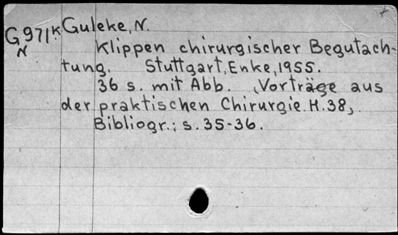 G971k Guleke, N.
N
Klippen chirurgischer Begutach-
tung. Stuttgart, Enke, 1955.
36 s. mit Abb. (Vorträge aus
der praktischen Chirurgie. H. 38),
Bibliogr.: s. 35-36.